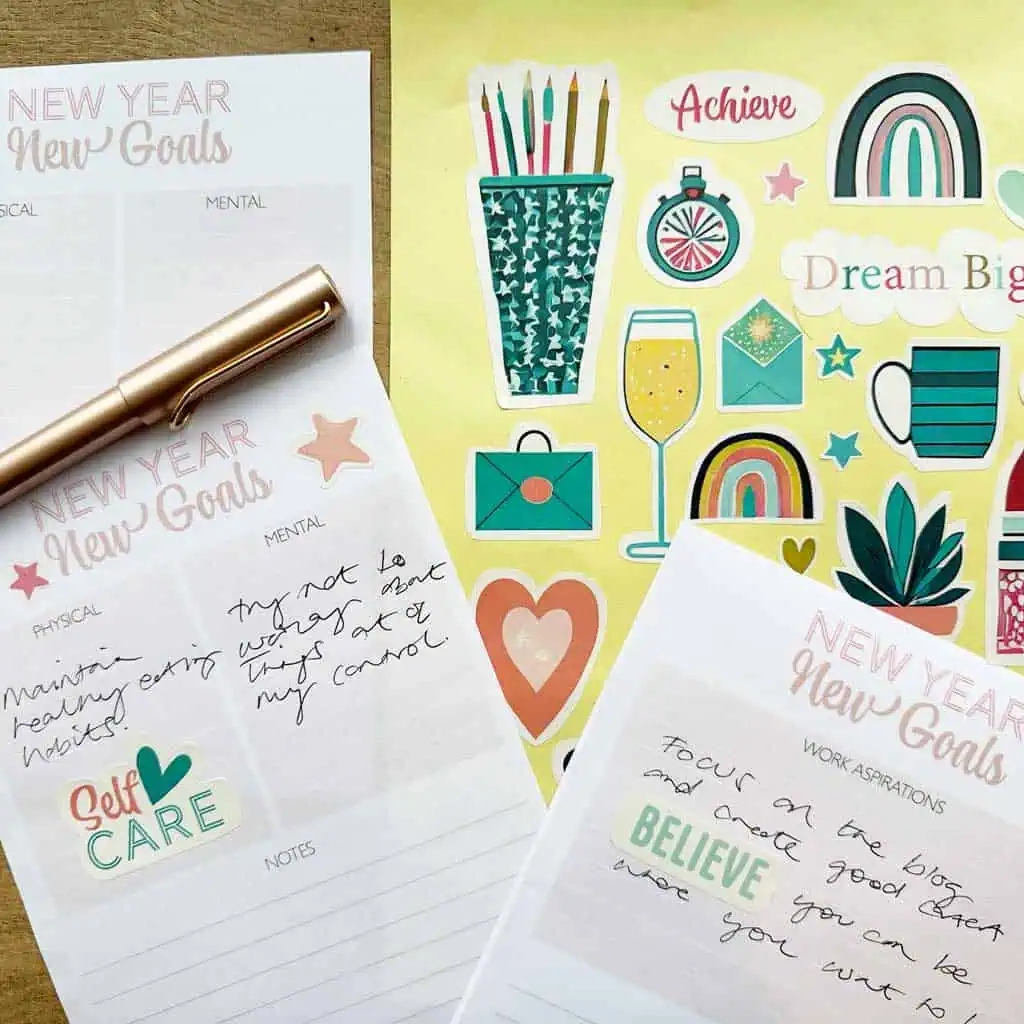 NEW YEAR
New Goals
SICAL
MENTAL
NEW YEAR
New Goals
PHYSICAL
maintain
healthy eating
habits.
MENTAL
try not to
worry about
things out of
my control.
Self
CARE
NOTES
Achieve
Dream Big
NEW YEAR
New Goals
WORK ASPIRATIONS
Focus on the blog
and create good content
BELIEVE you can be
where you want to